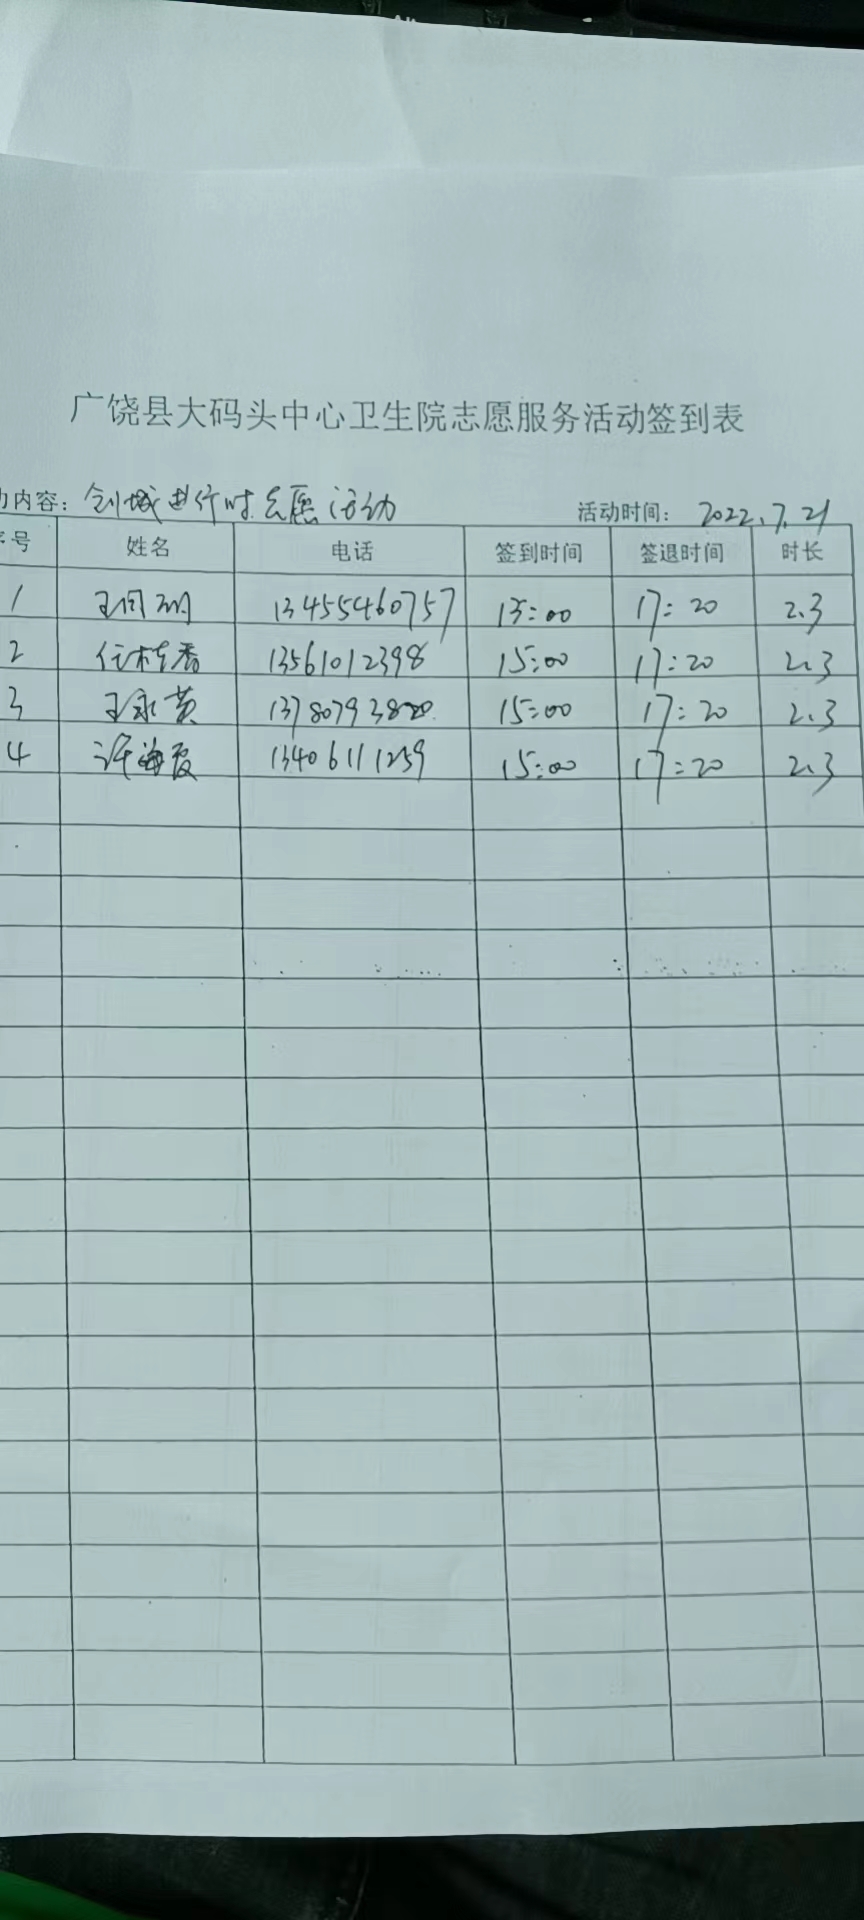 广饶县大码头中心卫生院志愿服务活动签到表
内容：创城进行时志愿活动 活动时间：2022.7.21
序号 姓名 电话 签到时间 签退时间 时长
1 13455460757 15:00 17:20 2.3
2 任桂香 13561012398 15:00 17:20 2.3
3 王永黄 13780793820 15:00 17:20 2.3
4 许海霞 13406111259 15:00 17:20 2.3